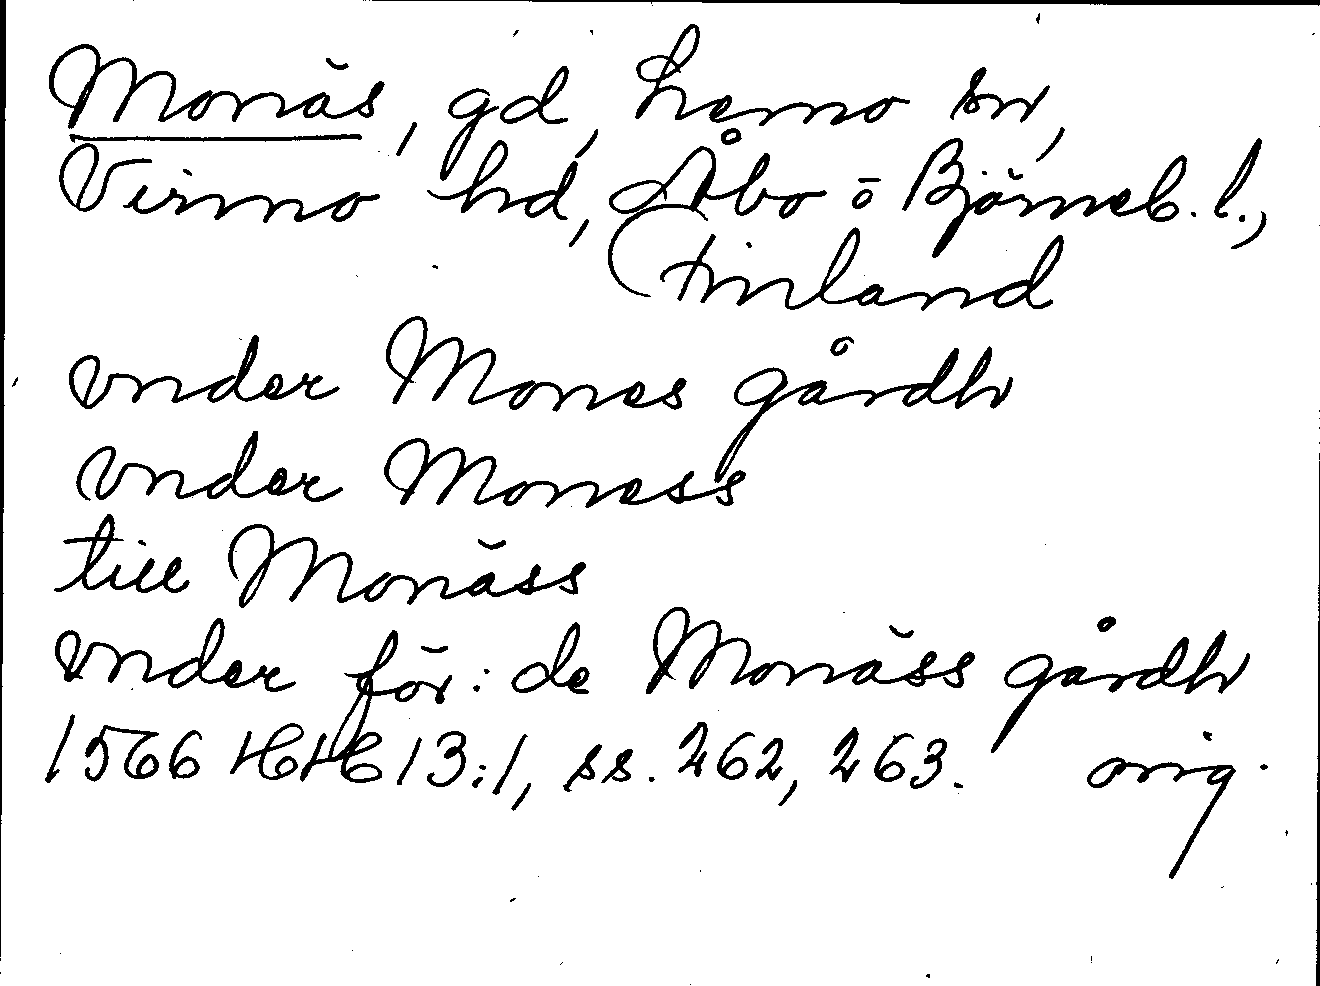 Monäs, gd, Lemo sn,
Virmo hd, Åbo o Björneb. l.,
Finland
vnder Mones gårdh
vnder Moness
till Monäss
vnder för:de Monäss gårdh
1566 HH 13:1, ss. 262, 263. orig.